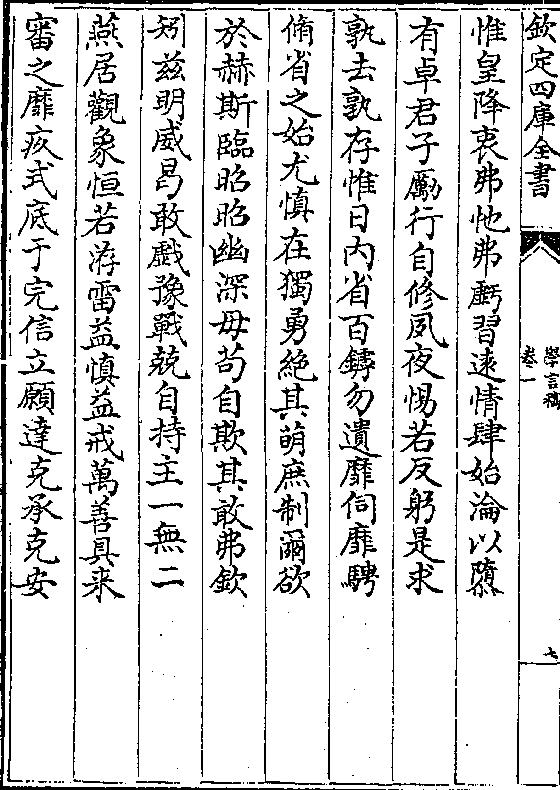 欽定四庫全書
學言稿
卷一
七
惟皇降衷弗他弗虧習遠情肆始淪以隳
有卓君子勵行自修夙夜惕若反躬是求
孰去孰存惟日内省百鏄勿遺靡伺靡騁
脩省之始尤慎在獨勇絶其萌庶制爾欲
於赫斯臨昭昭幽深毋茍自欺其敢弗欽
矧兹明威曷敢戲豫戰兢自持主一無二
燕居觀象恒若洊雷益慎益戒萬善具来
審之靡疚式底于完信立願達克承克安